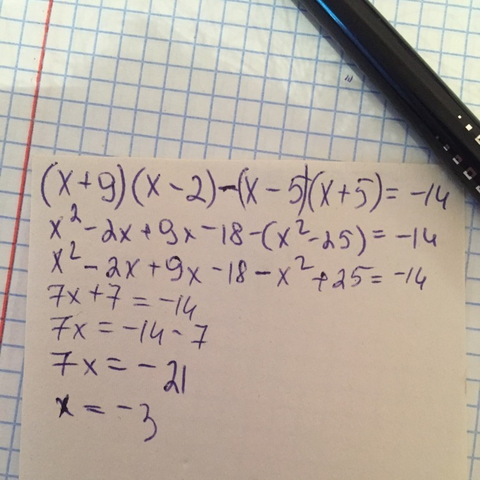 (x+9)(x-2)-(x-5)(x+5)=-14
x²-2x+9x-18-(x²-25)=-14
x²-2x+9x-18-x²+25=-14
7x+7=-14
7x=-14-7
7x=-21
x=-3